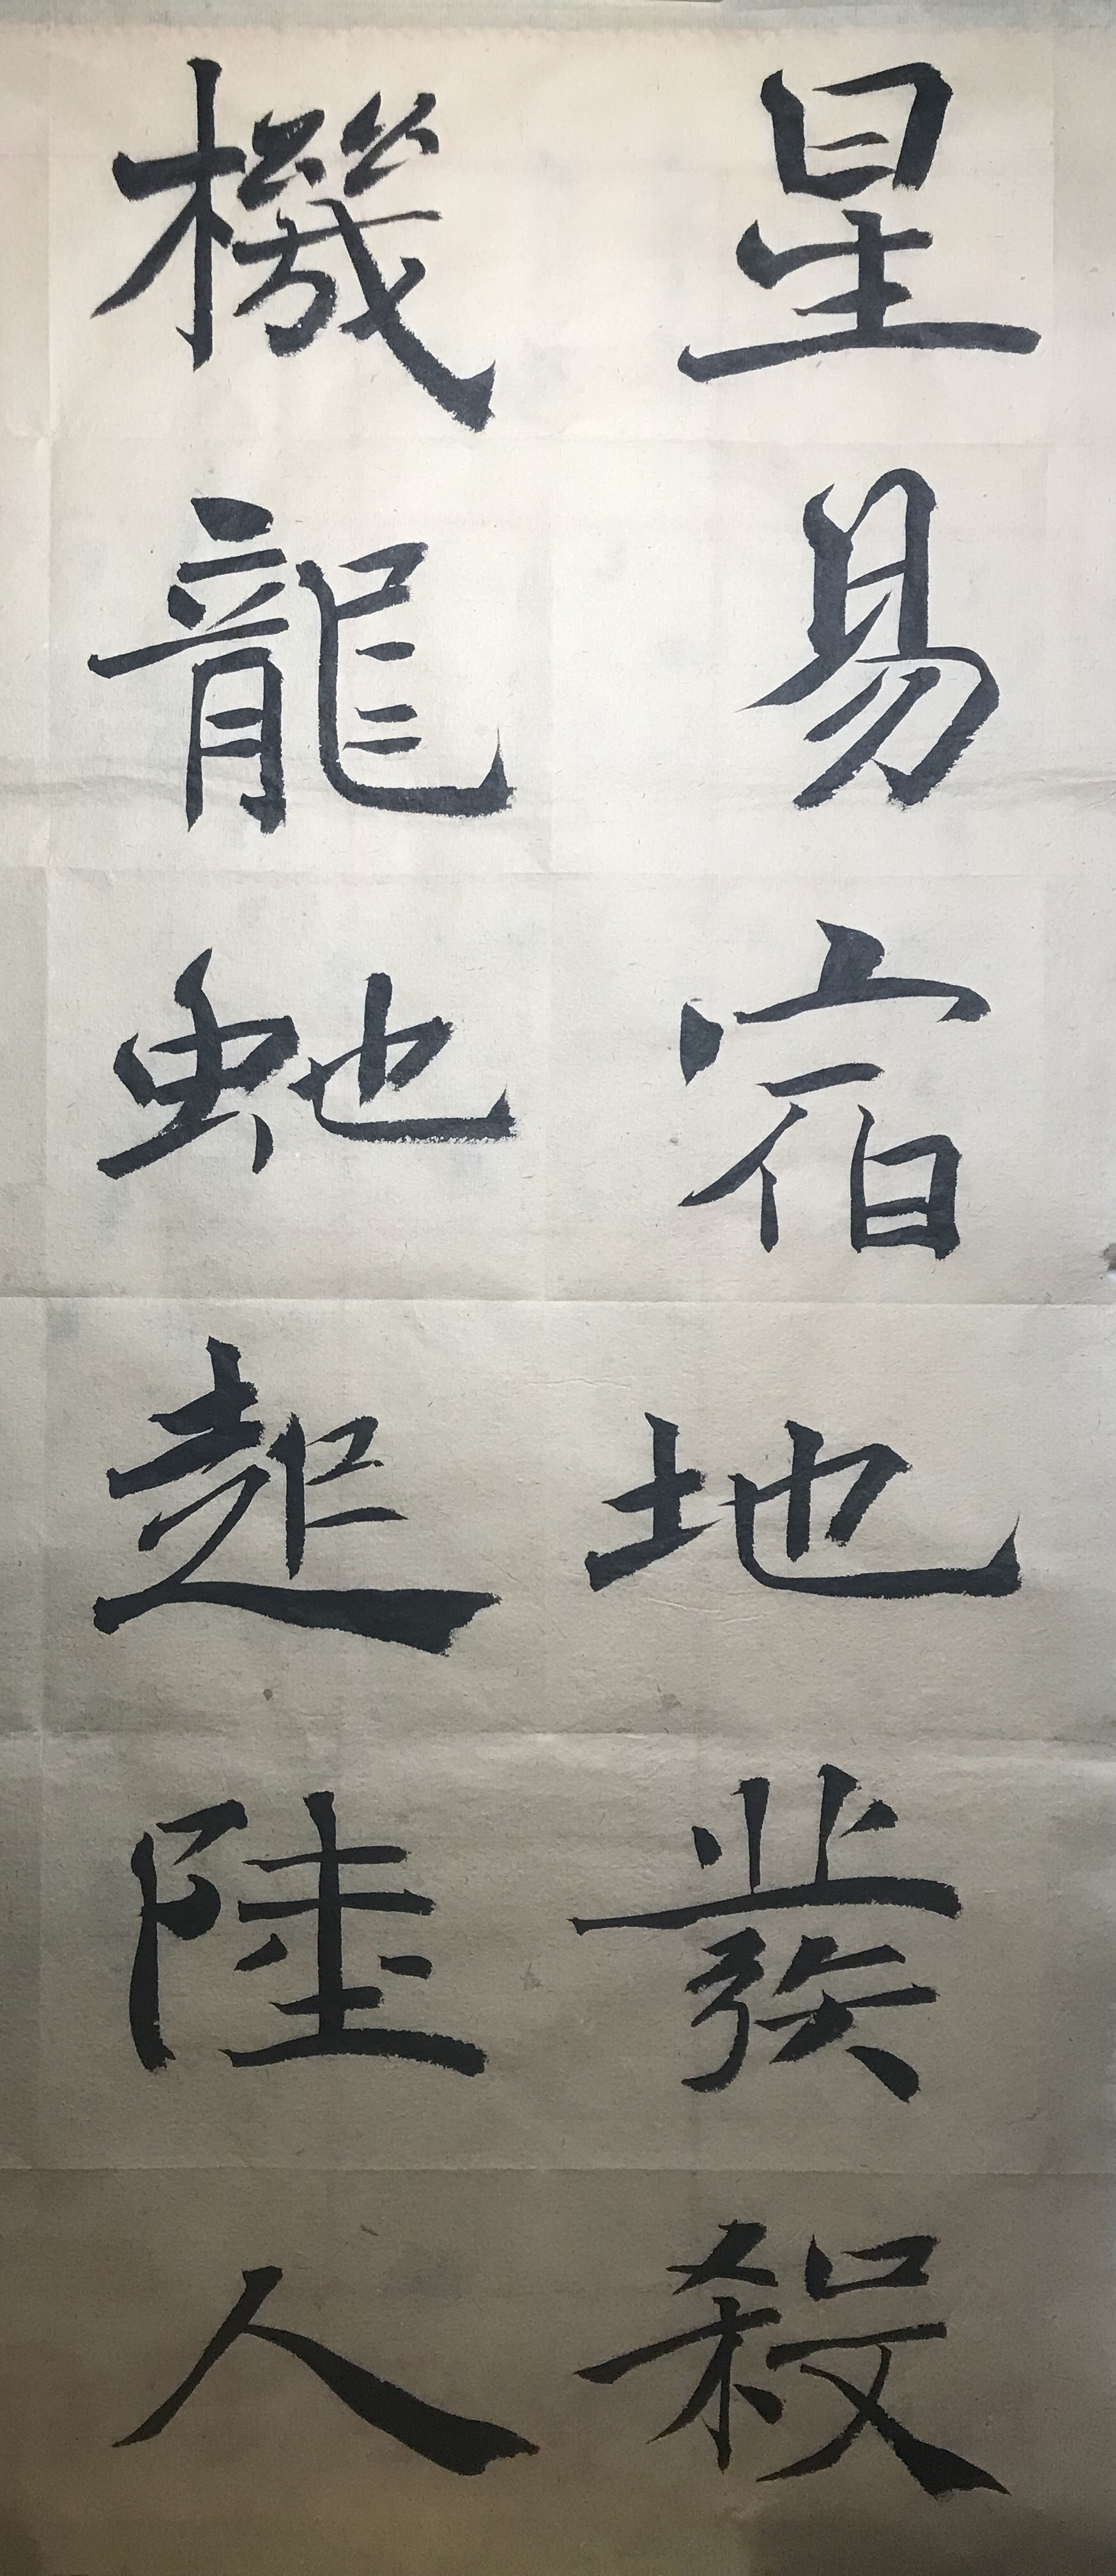 星易宿地發殺
機龍虵起陸人